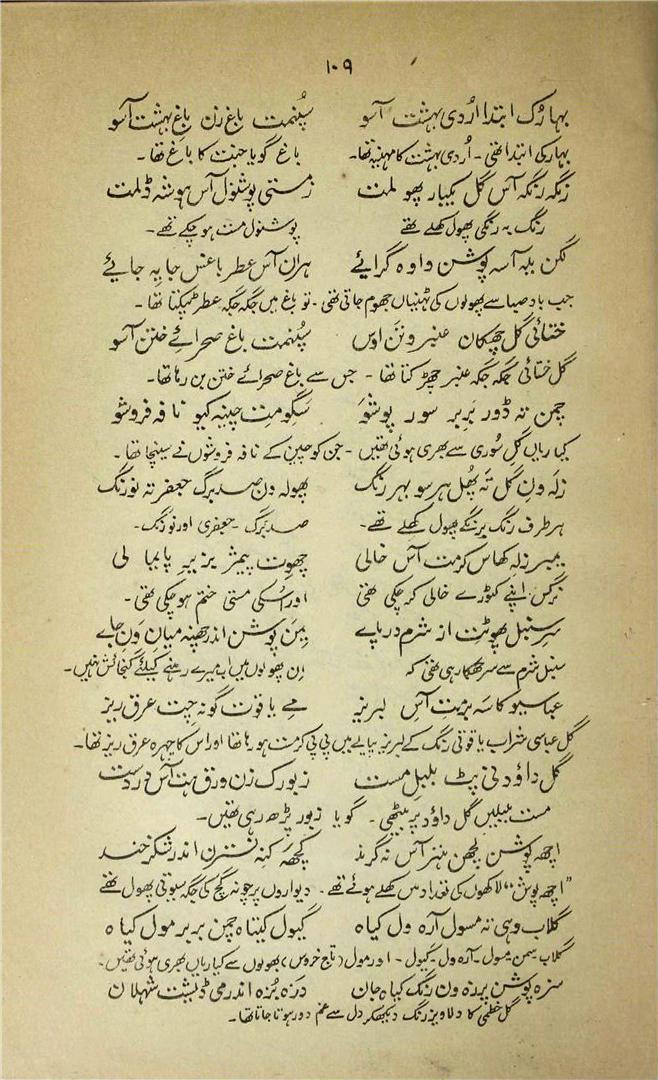 ۱۰۹
بہارُک ابتدا اُردی بہشت آسو سپُنمت باغ زن باغِ بہشت آسو
بہار کی ابتدا تھی۔ اُردی بہشت کا مہینہ تھا۔ باغ گویا جنت کا باغ تھا۔
رنگہ رنگہ آس گل یکبار پھولمت زمستی پوشنول آس ہوشہ ڈلمت
رنگ بہ رنگی پھول کھلے تھے پوشنول مست ہو چکے تھے۔
لگن یلہ آسہ پوشن داوہ گرائے ہران آس عطر باغس جایہ جائے
جب باد صبا سے پھولوں کی ٹہنیاں جھوم جاتی تھی۔ تو باغ میں جگہ جگہ عطر ٹپکتا تھا۔
ختائی گل چھکان عنبر ونن اوس سپُنمت باغ صحرائے ختن آسو
گل ختائی جگہ جگہ عنبر چھڑکتا تھا۔ جس سے باغ صحرائے ختن بن رہا تھا۔
چمن تہ ڈور بربر سور پوشو سگومت چینہ کیو نافہ فروشو
کیاریاں گل سُوری سے بھری ہوئی تھیں۔ جن کو چین کے نافہ فروشوں نے سینچا تھا۔
زلہ ون گل تہ پھل ہر سو بہر رنگ پھولہ ون صد برگ جعفر تہ نورنگ
ہر طرف رنگ برنگے پھول کھلے تھے۔ صد برگ۔ جعفری اور نورنگ۔
یمبرزلہ کھاس کرمت آس خالی چھوت پیمژ پایمالی
نرگس اپنے کٹورے خالی کر چکی تھی اور اسکی مستی ختم ہو چکی تھی۔
سر سنبل پھوٹت از شرم در پاے یمن پوشن اندر چھنہ میان ون جاے
سنبل شرم سے سر جھکا رہی تھی کہ اِن پھولوں میں اب میرے رہنے کیلئے گنجائش نہیں۔
عباسیو کاسہ بریت آس لبریز مے یاقوت گونہ چیت عرق ریز
گل عباسی شراب یاقوتی رنگ کے لبریز پیالے میں پی پی کر مست ہو رہا تھا اور اس کا چہرہ عرق ریز تھا۔
گل داؤدنی پٹ بلبل مست زبورک زن ورق ہت آس در دست
مست بلبلیں گل داؤد پر بیٹھی۔ گویا زبور پڑھ رہی تھیں۔
اچھ پوشن لچھن ہنز آس نہ گرند کچھہ کنہ نسترن اندر شکر خند
”اچھ پوش“ لاکھوں کی تعداد میں کھلے ہوئے تھے۔ دیواروں پر چونہ گچ کی جگہ سیوتی پھول تھے
گلاب وہی تہ مسول آرہ ول کیاہ گیول کیتاہ چمن بربر مول کیاہ
گلاب یسمن مسول۔ آرہ ول۔ گیول۔ اور مول (تاج خروس) پھولوں سے کیاریاں بھری ہوئی تھیں۔
سزہ پوشن پرزہ ون رنگ کیاہ جان اندر شہلان
گل خطمی کا دلاویز رنگ دیکھکر دل سے غم دور ہوتا جاتا تھا۔